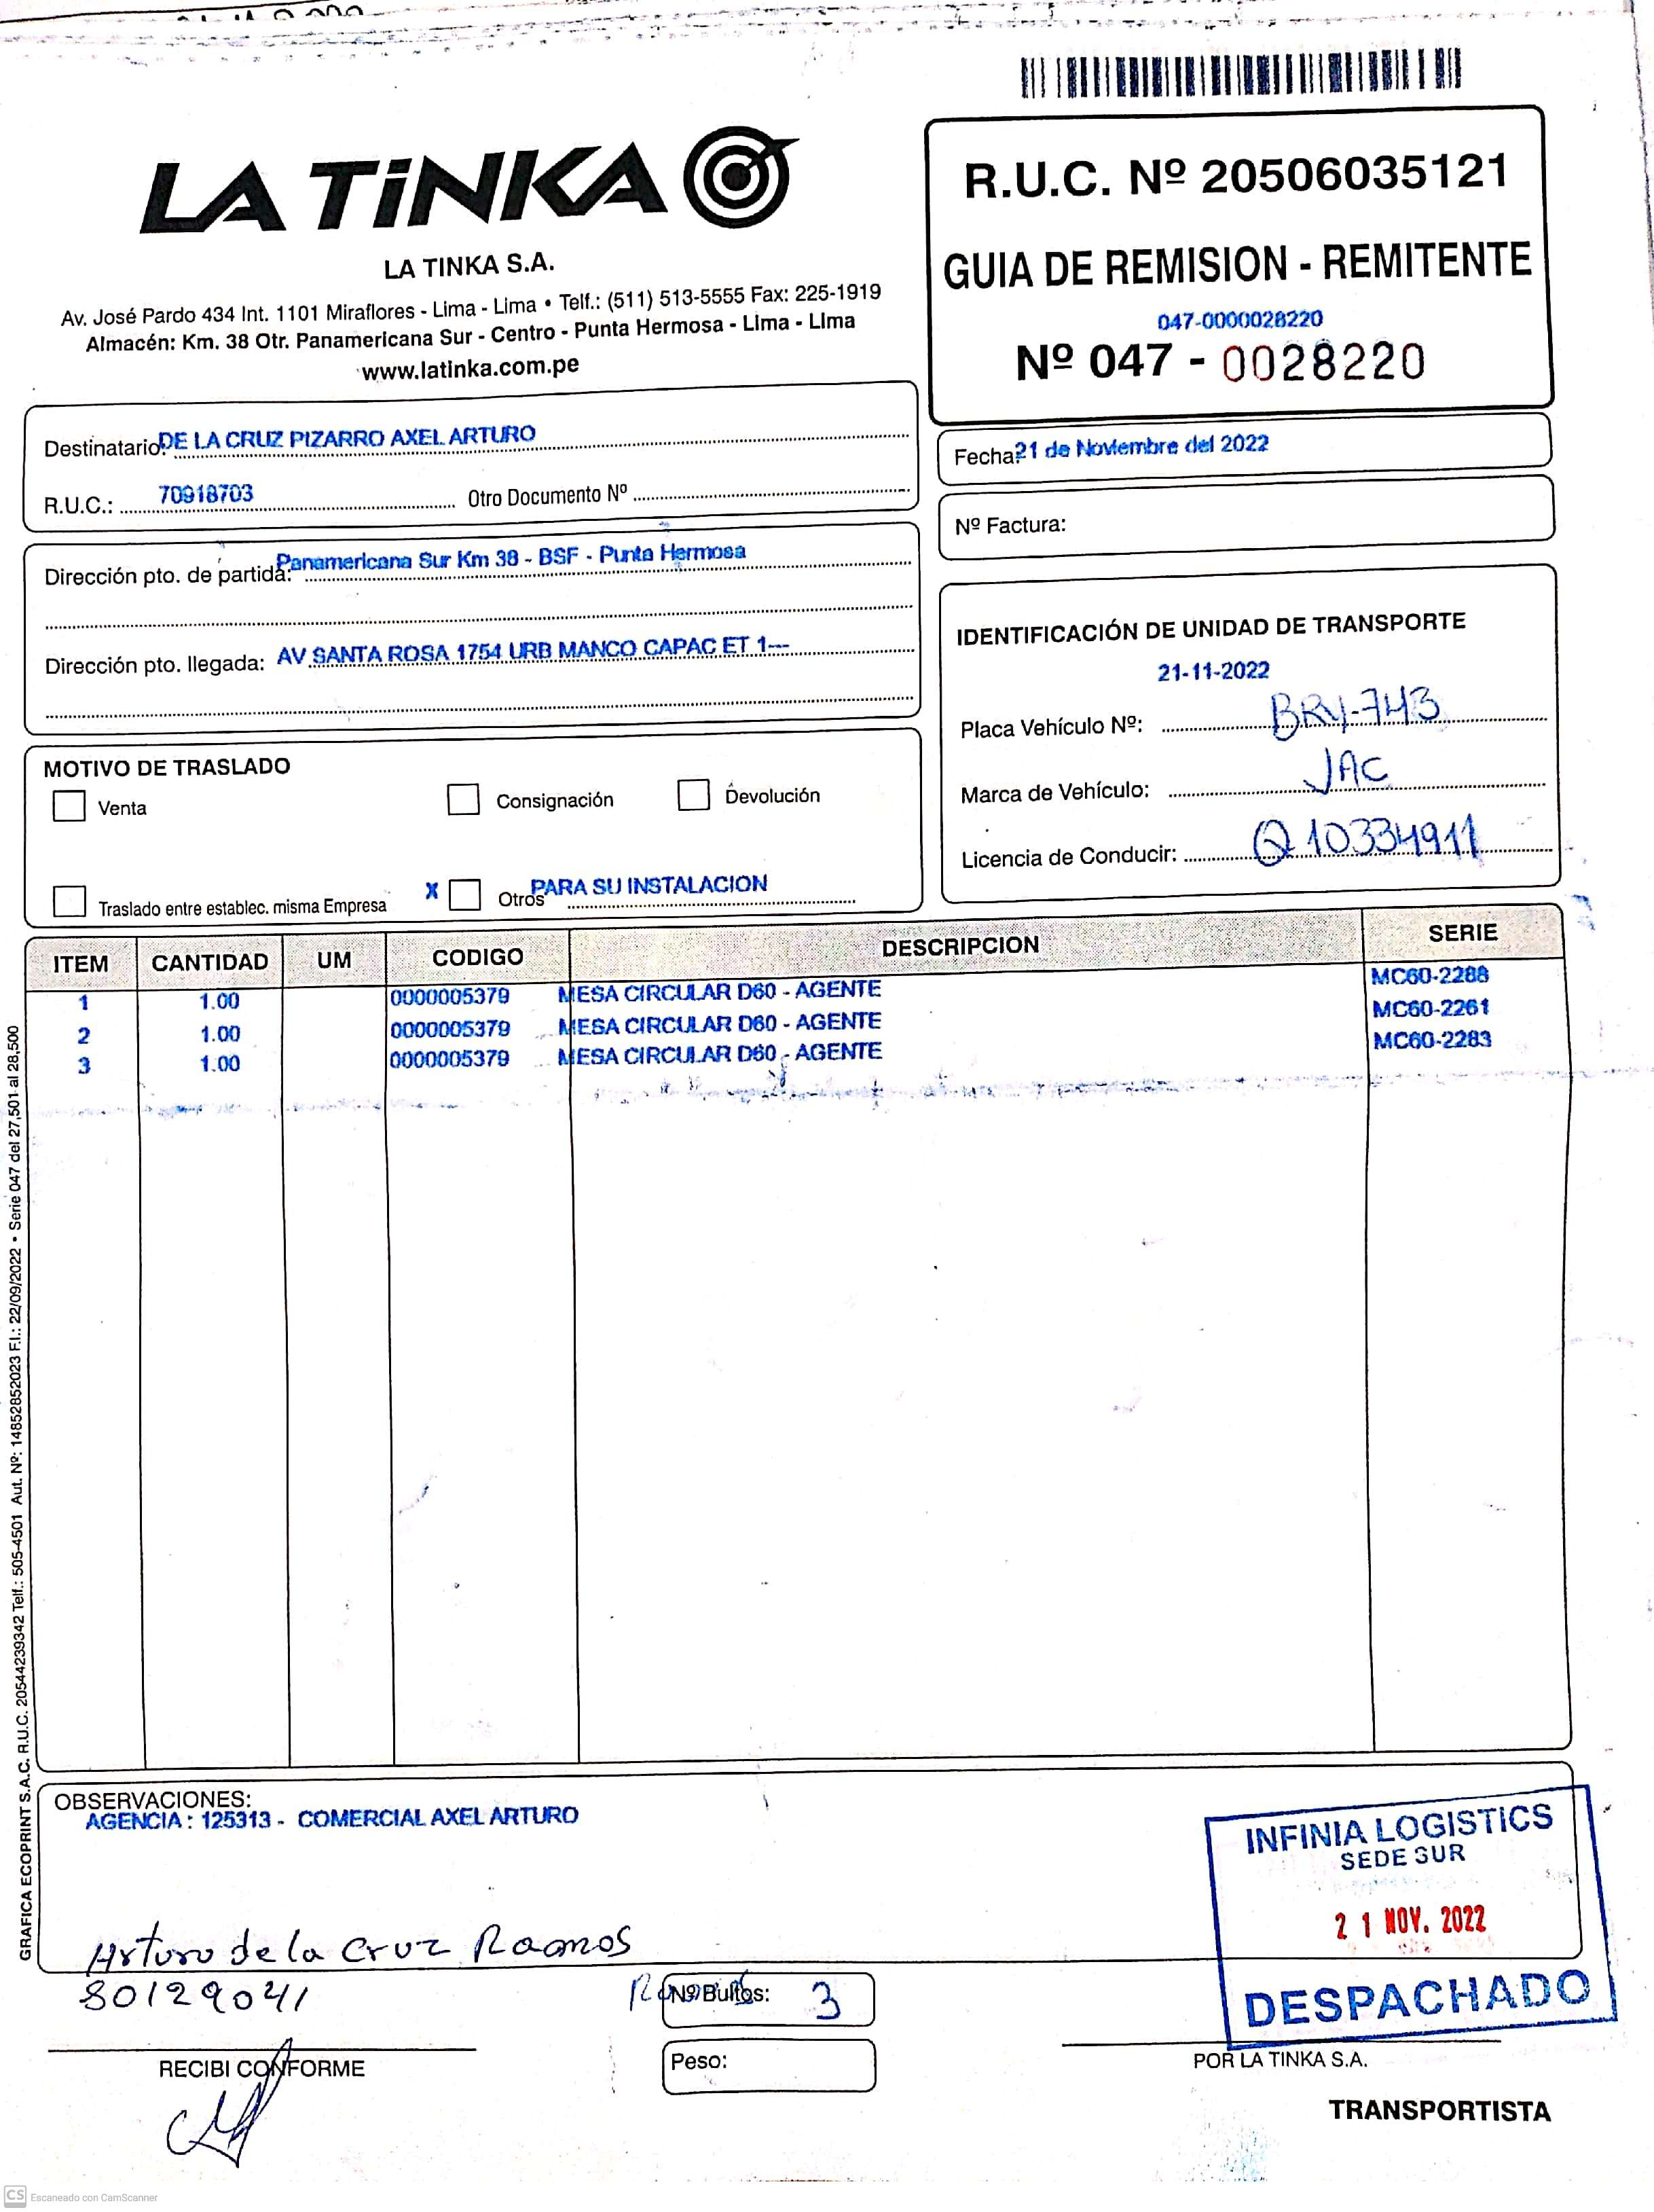 LA TiNKA
LA TINKA S.A.
Av. José Pardo 434 Int. 1101 Miraflores - Lima - Lima • Telf.: (511) 513-5555 Fax: 225-1919
Almacén: Km. 38 Otr. Panamericana Sur - Centro - Punta Hermosa - Lima - LIma
www.latinka.com.pe
R.U.C. Nº 20506035121
GUIA DE REMISION - REMITENTE
047-0000028220
Nº 047 - 0028220
Destinatario: DE LA CRUZ PIZARRO AXEL ARTURO
R.U.C.: 70918703 Otro Documento Nº
Fecha: 21 de Noviembre del 2022
Nº Factura:
Dirección pto. de partida: Panamericana Sur Km 38 - BSF - Punta Hermosa
Dirección pto. llegada: AV SANTA ROSA 1754 URB MANCO CAPAC ET 1---
IDENTIFICACIÓN DE UNIDAD DE TRANSPORTE
21-11-2022
Placa Vehículo Nº: BRY-743
Marca de Vehículo: JAC
Licencia de Conducir: Q10334911
MOTIVO DE TRASLADO
Venta Consignación Devolución
Traslado entre establec. misma Empresa X Otros PARA SU INSTALACION
ITEM CANTIDAD UM CODIGO DESCRIPCION SERIE
1 1.00 0000005379 MESA CIRCULAR D60 - AGENTE MC60-2288
2 1.00 0000005379 MESA CIRCULAR D60 - AGENTE MC60-2261
3 1.00 0000005379 MESA CIRCULAR D60 - AGENTE MC60-2283
GRAFICA ECOPRINT S.A.C. R.U.C. 20544239342 Telf.: 505-4501 Aut. Nº: 14852852023 F.I.: 22/09/2022 • Serie 047 del 27,501 al 28,500
OBSERVACIONES:
AGENCIA : 125313 - COMERCIAL AXEL ARTURO
INFINIA LOGISTICS
SEDE SUR
21 NOV. 2022
DESPACHADO
Arturo de la Cruz Ramos
80129041
Nº Bultos: 3
Peso:
RECIBI CONFORME
POR LA TINKA S.A.
TRANSPORTISTA
CS Escaneado con CamScanner